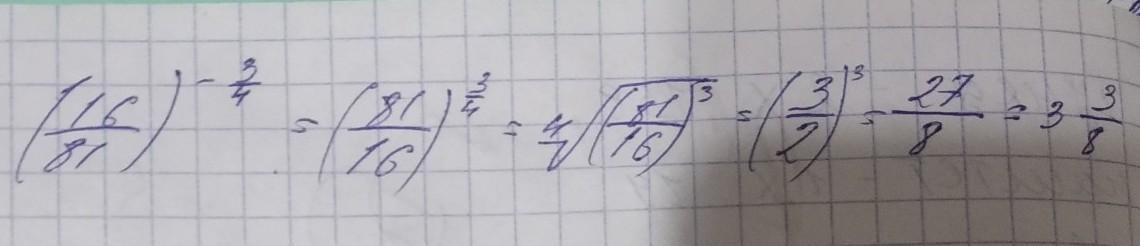 (16/81)^(-3/4) = (81/16)^(3/4) = ⁴√(81/16)³ = (3/2)³ = 27/8 = 3 3/8